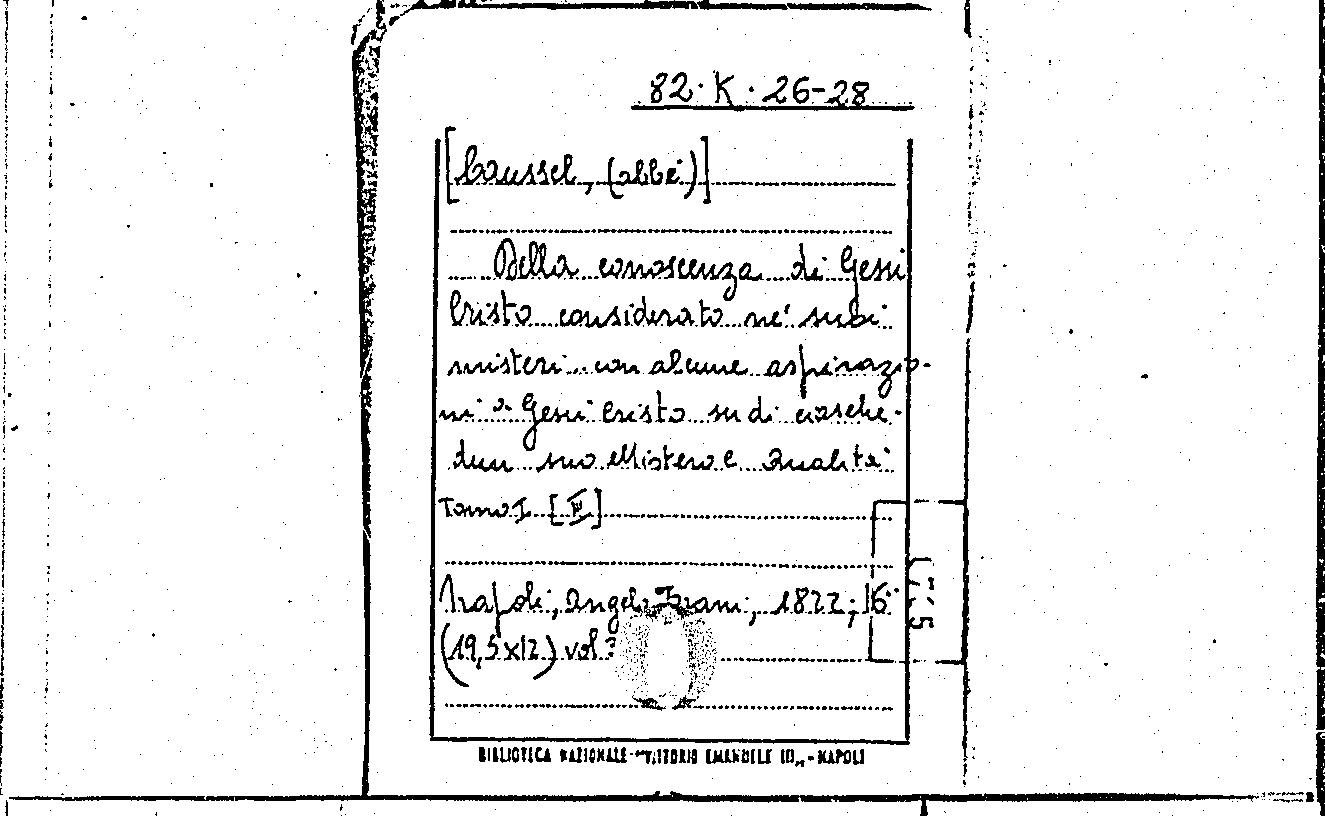 82. K. 26-28
[Caussel, (abbé)]
Della conoscenza di Gesù
Cristo considerato ne' suoi
misteri con alcune aspirazio-
ni a Gesù Cristo su di ciasche-
dun suo Mistero e Qualità
Tomo I [III]
Napoli, Angelo Trani, 1822; 16°
(19,5x12) vol. 3
BIBLIOTECA NAZIONALE "VITTORIO EMANUELE III" - NAPOLI